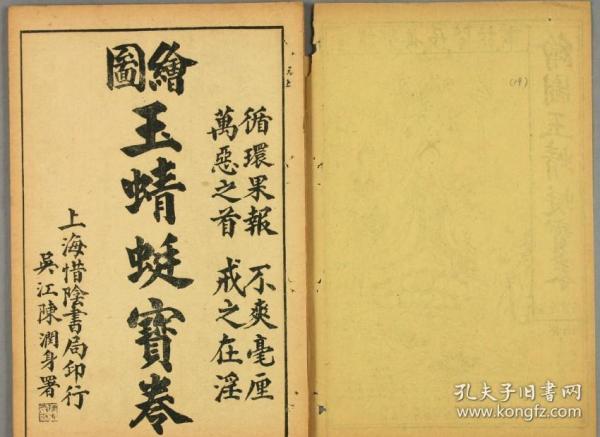 循環果報 不爽毫厘
萬惡之首 戒之在淫
繪圖
玉蜻蜓寶卷
上海惜陰書局印行
吳江陳潤身署
(19)
孔夫子旧书网
www.kongfz.com